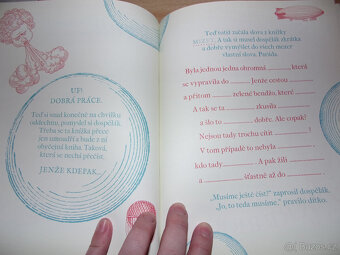 UF!
DOBRÁ PRÁCE.
Teď si snad konečně na chvilku
oddechnu, pomyslel si dospělák.
Třeba se ta knížka přece
jen umoudří a bude z ní
obyčejná kniha. Taková,
která se nechá přečíst.
JENŽE KDEPAK...
Teď totiž začala slova z knížky
MIZET. A tak si musel dospělák zkrátka
a dobře vymýšlet do všech mezer
vlastní slova. Paráda.
Byla jednou jedna ohromná která
se vypravila do Jenže cestou
a přitom zelené henďžo, které
A tak se ta zkusila
a šlo to dobře. Ale copak!
Nejsou tady trochu cítit ?
V tom případě to nebyla ,
kdo tady . A pak žili
a šťastně až do
„Musíme ještě číst?“ zaprosil dospělák.
„Jo, to teda musíme,“ pravilo dítko.